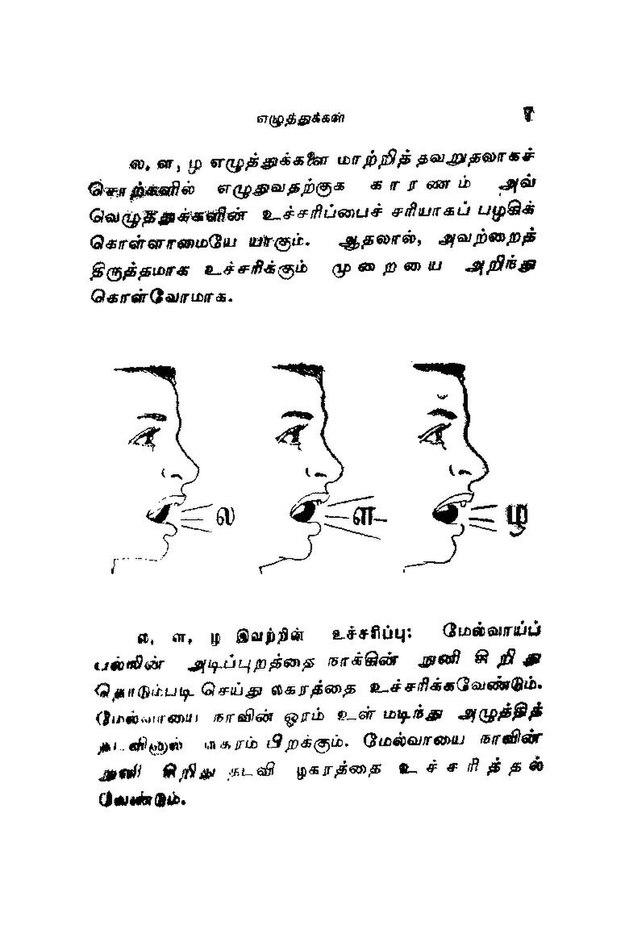 எழுத்துக்கள் 7
ல, ள, ழ எழுத்துக்களை மாற்றித் தவறுதலாகச்
சொற்களில் எழுதுவதற்குக காரணம் அவ்
வெழுத்துக்களின் உச்சரிப்பைச் சரியாகப் பழகிக்
கொள்ளாமையே யாகும். ஆதலால், அவற்றைத்
திருத்தமாக உச்சரிக்கும் முறையை அறிந்து
கொள்வோமாக.
ல ள ழ
ல, ள, ழ இவற்றின் உச்சரிப்பு: மேல்வாய்ப்
பல்லின் அடிப்புறத்தை நாக்கின் நுனி சிறிது
தொடும்படி செய்து லகரத்தை உச்சரிக்கவேண்டும்.
மேல்வாயை நாவின் ஓரம் உள் மடிந்து அழுத்தித்
பிறக்கும். மேல்வாயை நாவின்
நுனி சிறிது தடவி ழகரத்தை உச்சரித்தல்
வேண்டும்.